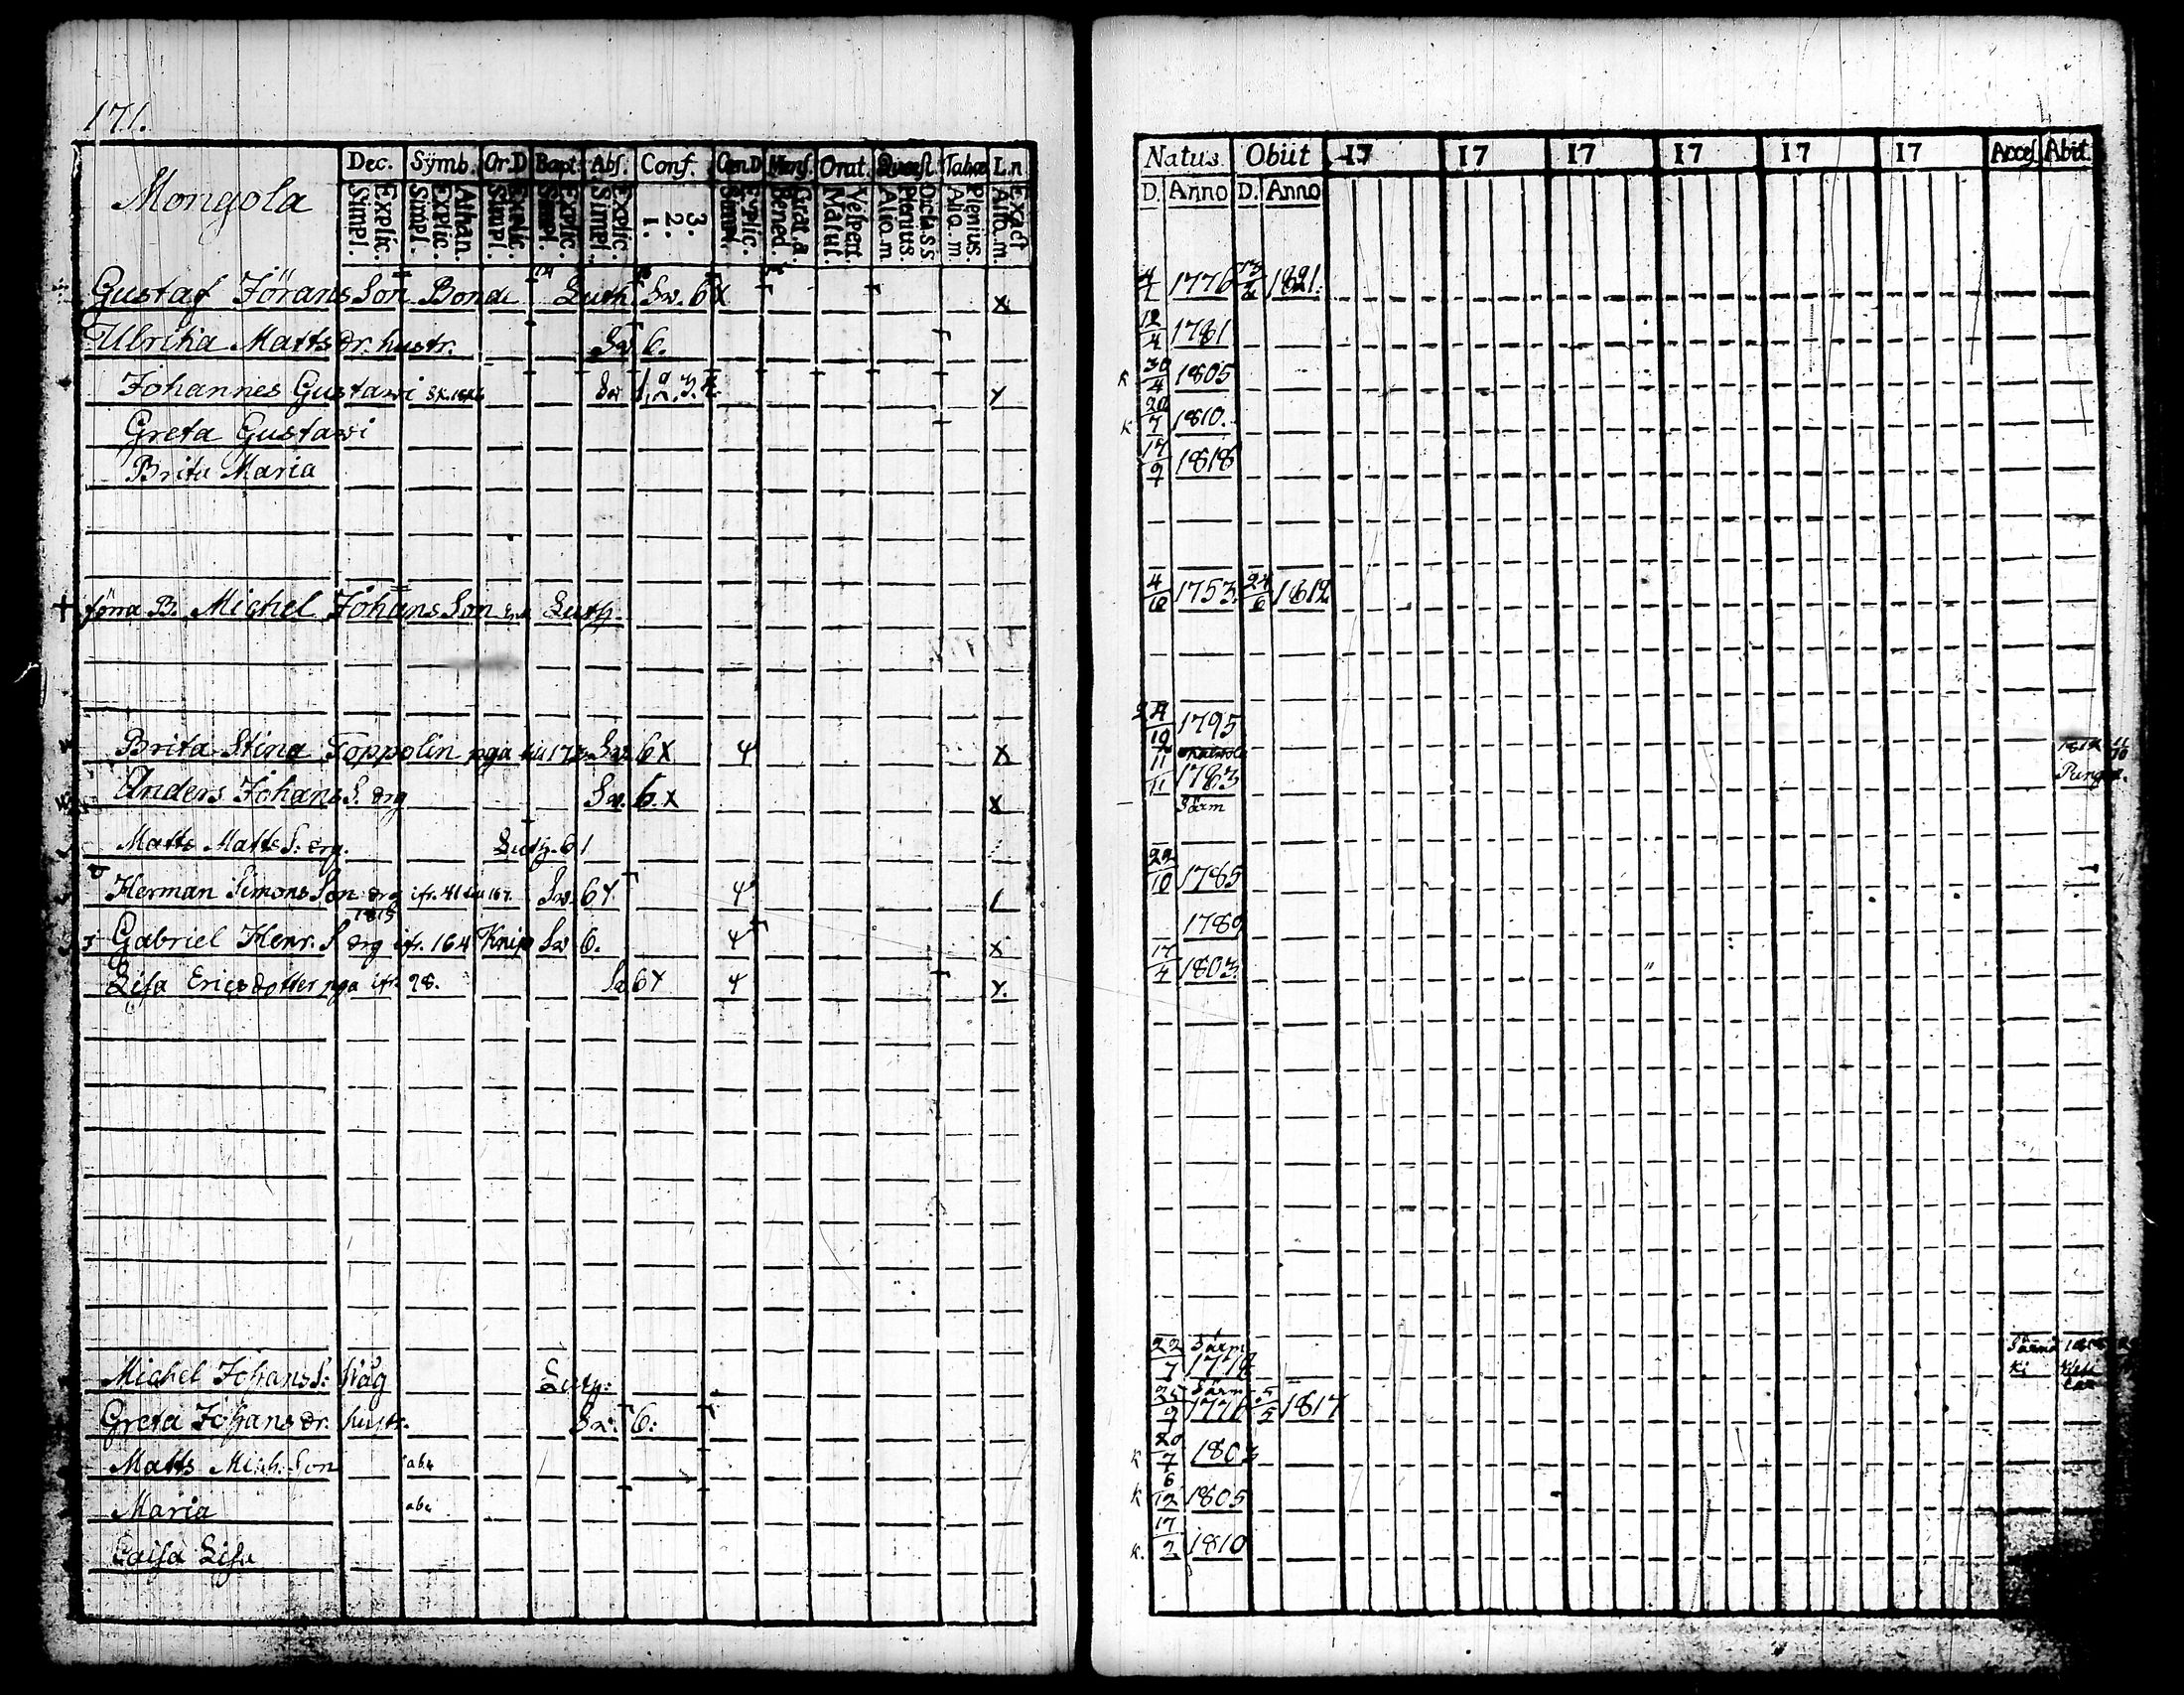 171.
Mongola
Dec. Sÿmb. Or.D Bapt. Abs. Conf. Cen.D Mens. Orat. Quæst. Tabæ L.n
Explic. Simpl. Athan. Explic. Simpl. Explic. Simpl. Explic. Simpl. Explic. Simpl. 3. 2. 1. Explic. Simpl. Grat. a. Bened. Vespert. Matut. Dicta S.S Plenius. Aliq. m Plenius. Aliq. m Exact Aliq. m.
Gustaf Jörans Son Bonde Luth. Sw. 6 X x
Ulrika Matts dr. hustr. Sw 6.
Johannes Gustawi Sw 1,2,3,4
Greta Gustawi
Brita Maria
+ förra B. Michel Johans Son Luth.
Brita Stina Toppolin pga Sw 6 X 4 X
Anders Johans S. drg Sw. 6. X x
Matts Matts S: drg. Luth. 6 1
Herman Simons Son drg ifr. 41 167. Sw. 6 4
1815
Gabriel Henr. S drg ifr. 164 Knip Sw 6. 4 x
Lisa Ericsdotter pga ifr. 28. Sw 6 4
Michel Johans S: Luth:
Greta Johans dr. hustr. Sw: 6:
Matts Mich. Son
Maria
Caisa Lisa
Natus. Obiit 17 17 17 17 17 17 Acces. Abit.
D. Anno D. Anno
1776 1821.
12/4 1781
K 30/4 1805
K 20/7 1810.
17/9 1818
4/12 1753 24/6 1812
24/10 1795
11/11 1783
Särm
22/10 1785
1789
17/4 1803
Särm
22/7
Särm
25/9 1776 5/5 1817
K 20/7 1803
K 6/12 1805
K. 17/2 1810